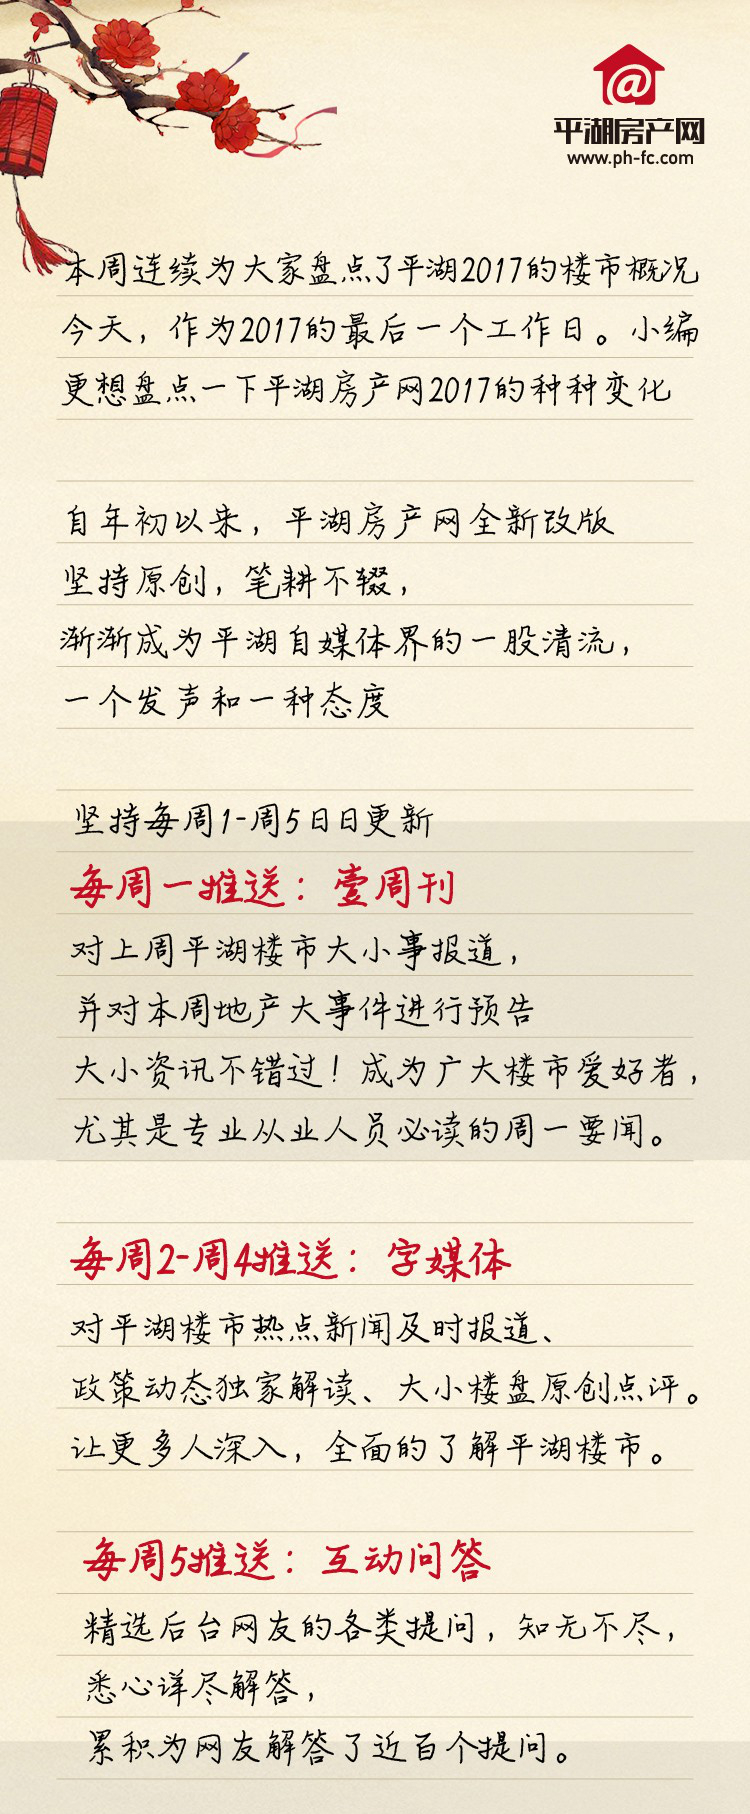 平湖房产网
www.ph-fc.com
本周连续为大家盘点了平湖2017的楼市概况
今天，作为2017的最后一个工作日。小编
更想盘点一下平湖房产网2017的种种变化
自年初以来，平湖房产网全新改版
坚持原创，笔耕不辍，
渐渐成为平湖自媒体界的一股清流，
一个发声和一种态度
坚持每周1-周5日日更新
每周一推送：壹周刊
对上周平湖楼市大小事报道，
并对本周地产大事件进行预告
大小资讯不错过！成为广大楼市爱好者，
尤其是专业从业人员必读的周一要闻。
每周2-周4推送：字媒体
对平湖楼市热点新闻及时报道、
政策动态独家解读、大小楼盘原创点评。
让更多人深入，全面的了解平湖楼市。
每周5推送：互动问答
精选后台网友的各类提问，知无不尽，
悉心详尽解答，
累积为网友解答了近百个提问。